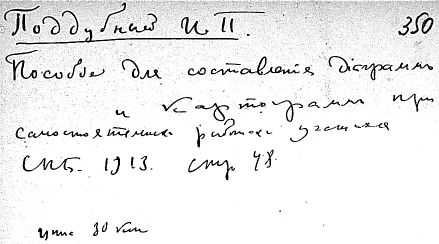 Поддубный И. П. 350
Пособие для составленія діаграммъ
и картограммъ при
самостоятельных работах учащихся
СПБ. 1913. стр 48.
цена 30 коп